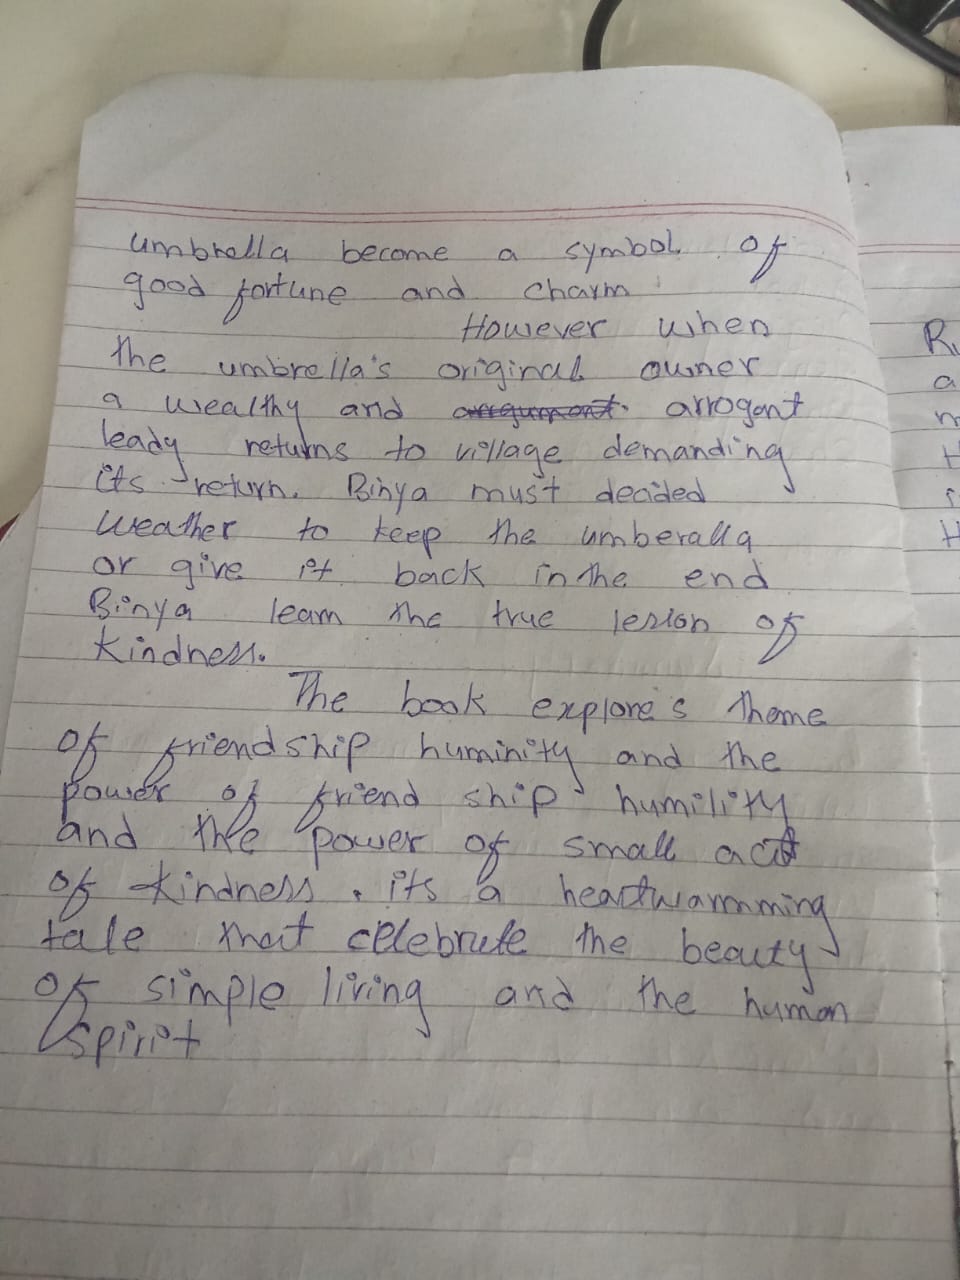 umbrella become a symbol of
good fortune and charm
However when
the umbrella's original owner
a wealthy and arrogant
leady returns to village demanding
its return. Binya must decided
weather to keep the umberalla
or give it back in the end
Binya learn the true lesion of
kindness.
The book explore's theme
of friendship huminity and the
power of friend ship humility
and the power of small act
of kindness. its a heartwarmming
tale that celebrate the beauty
of simple living and the human
spirit